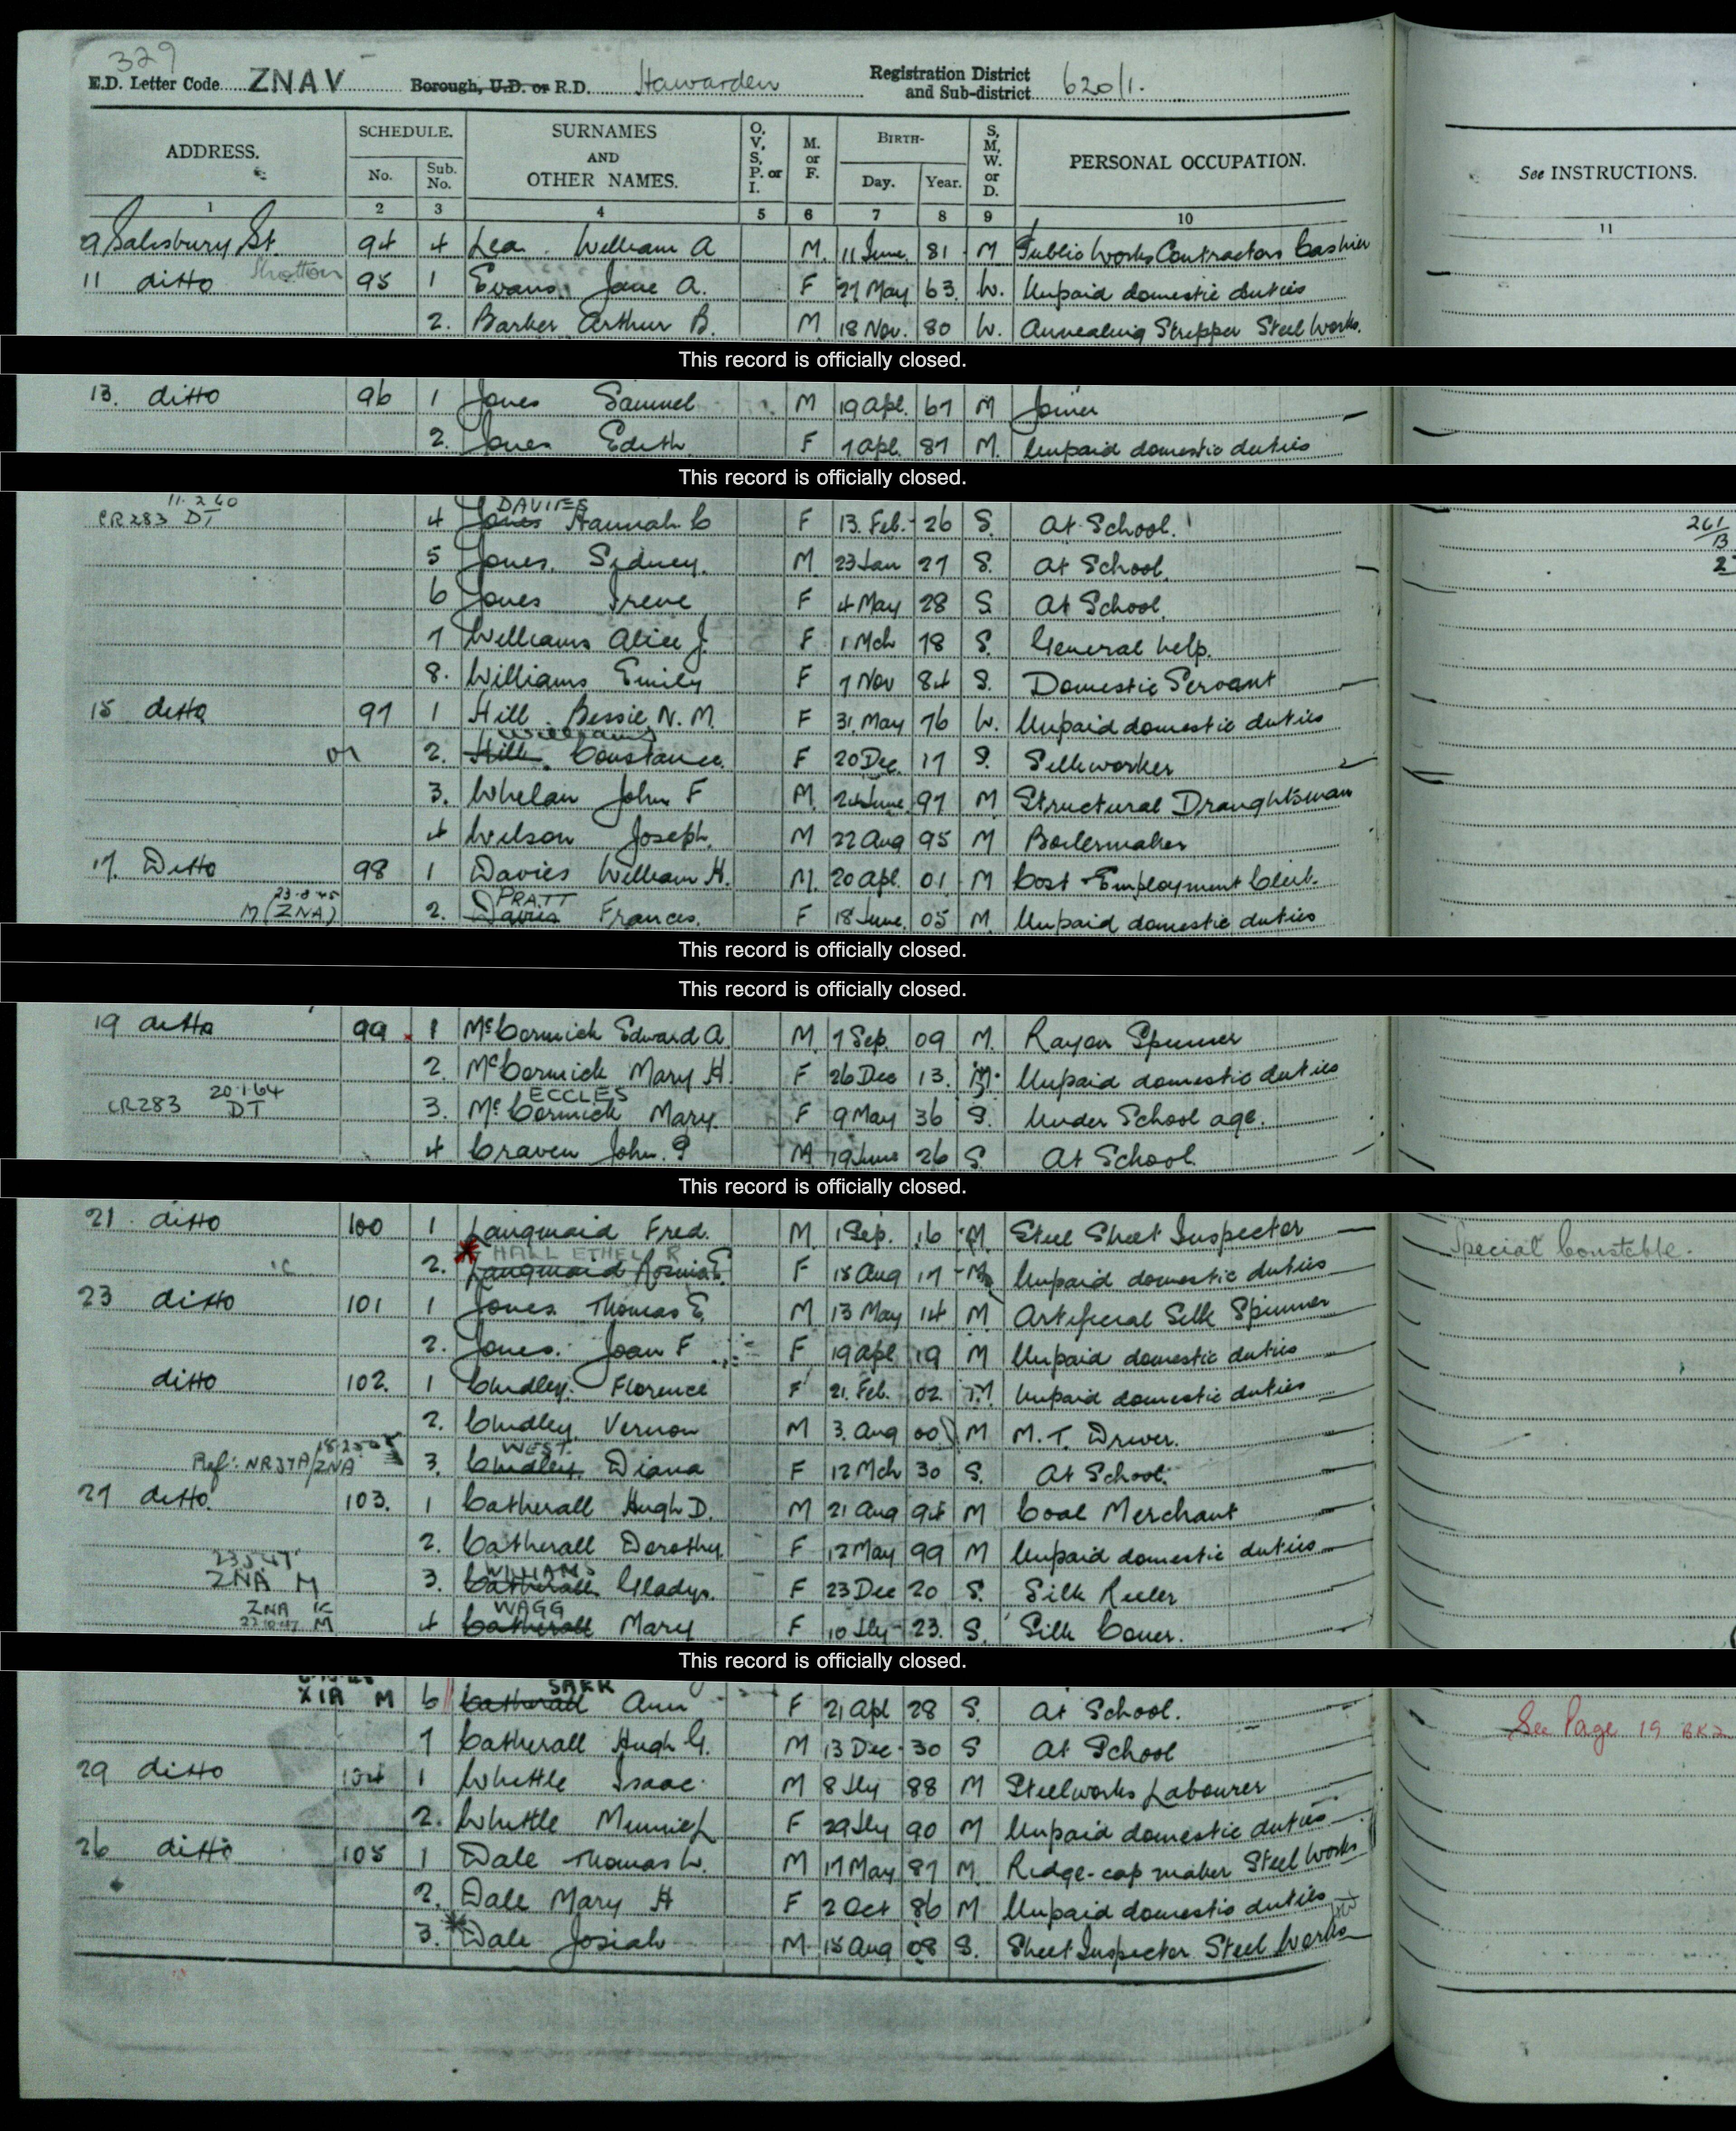 329
E.D. Letter Code ZNAV Borough, U.D. or R.D. Hawarden Registration District and Sub-district 620/1.
ADDRESS. SCHEDULE. No. Sub. No. SURNAMES AND OTHER NAMES. O. V. S. P. or I. M. or F. BIRTH- Day. Year. S. M. W. or D. PERSONAL OCCUPATION. See INSTRUCTIONS.
1 2 3 4 5 6 7 8 9 10 11
9 Salisbury St. 94 4 Lea William A M. 11 June 81 M Public Works Contractors Cashier
11 ditto Shotton 95 1 Evans Jane A. F 27 May 63 W. Unpaid domestic duties
2. Barker Arthur B. M 18 Nov. 80 W. Annealing Stripper Steel Works.
This record is officially closed.
13. ditto 96 1 Jones Samuel M 19 Apl. 67 M Joiner
2. Jones Edith F 7 Apl. 87 M. Unpaid domestic duties
This record is officially closed.
11.2.60 DAVIES
CR283 DT 4 Jones Hannah C F 13 Feb. 26 S. At School.
5 Jones Sydney. M 23 Jan 27 S. At School.
6 Jones Irene F 4 May 28 S At School.
7 Williams Alice J. F 1 Mch 18 S. General help.
8. Williams Emily F 7 Nov 84 S. Domestic Servant
15 ditto 97 1 Hill Bessie N. M. F 31 May 76 W. Unpaid domestic duties
Williams
or 2. Hill Constance. F 20 Dec. 17 S. Silkworker
3. Whelan John F M. 24 June 97 M Structural Draughtsman
4 Wilson Joseph. M 22 Aug 95 M Boilermaker
17. Ditto 98 1 Davies William H. M. 20 Apl. 01 M Cost & Employment Clerk.
23.8.45 PRATT
M (ZNA) 2. Davies Frances. F 18 June 05 M Unpaid domestic duties
This record is officially closed.
This record is officially closed.
19 ditto 99 1 McCormick Edward A. M. 7 Sep. 09 M. Rayon Spinner
2. McCormick Mary H. F 26 Dec 13. M. Unpaid domestic duties
20.1.64 ECCLES
CR283 DT 3. McCormick Mary. F 9 May 36 S. Under School age.
4 Craven John. P M 19 June 26 S. At School
This record is officially closed.
21. ditto 100 1 Langmaid Fred. M. 1 Sep. 16 M. Steel Sheet Inspector Special Constable.
HALL ETHEL R
2. Langmaid F 15 Aug 17 M Unpaid domestic duties
23 ditto 101 1 Jones Thomas E. M 13 May 14 M Artificial Silk Spinner
2. Jones. Joan F F 19 Apl 19 M Unpaid domestic duties
ditto 102. 1 Chidley. Florence F 21. Feb. 02 M Unpaid domestic duties
2. Chidley Vernon M 3. Aug 00 M M.T. Driver.
WEST.
Ref:- NR37A/ZNA 3. Chidley Diana F 12 Mch 30 S. At School.
27 ditto. 103. 1 Catherall Hugh D. M 21 Aug 94 M Coal Merchant
2. Catherall Dorothy F 12 May 99 M Unpaid domestic duties
23.5.47 WILLIAMS
ZNA M 3. Catherall Gladys. F 23 Dec 20 S. Silk Reeler
ZNA WAGG
M 4 Catherall Mary F 10 Jly 23. S. Silk Coner.
This record is officially closed.
X1A M 6 Catherall Ann F 21 Apl 28 S. At School.
7 Catherall Hugh G. M 13 Dec 30 S At School See Page 19 BK2
29 ditto 104 1 Whittle Isaac M 8 Jly 88 M Steelworks Labourer
2. Whittle Minnie L F 29 Jly 90 M Unpaid domestic duties
26 ditto 105 1 Dale Thomas W. M 17 May 87 M. Ridge-cap maker Steel Works
2. Dale Mary H F 2 Oct 86 M Unpaid domestic duties
3. Dale Josiah M 15 Aug 08 S. Sheet Inspector Steel Works